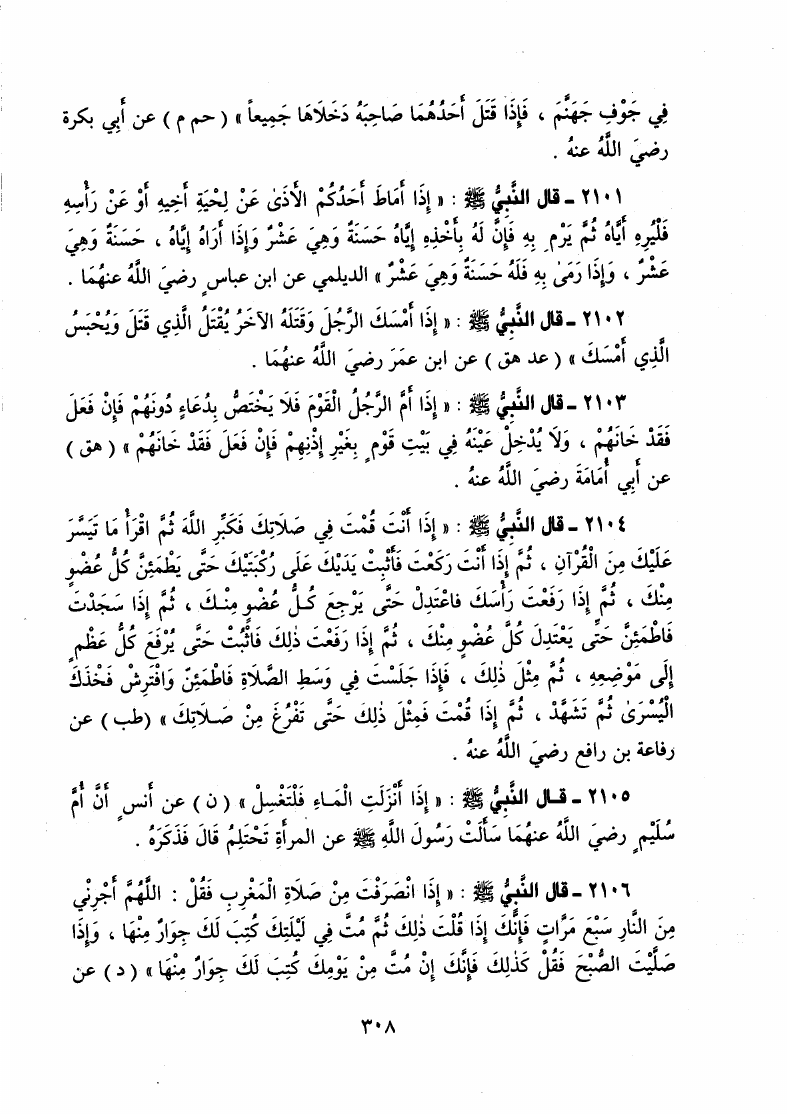 فِي جَوْفِ جَهَنَّمَ ، فَإِذَا قَتَلَ أَحَدُهُمَا صَاحِبَهُ دَخَلَاهَا جَمِيعاً » ( حم م ) عن أَبِي بكرة
رضيَ اللَّهُ عنهُ .
٢١٠١ ـ قال النَّبِيُّ ﷺ : « إِذَا أَمَاطَ أَحَدُكُمْ الأَذىٰ عَنْ لِحْيَةِ أَخِيهِ أَوْ عَنْ رَأْسِهِ
فَلْيُرِهِ أَيَّاهُ ثُمَّ يَرْمِ بِهِ فَإِنَّ لَهُ بِأَخْذِهِ إِيَّاهُ حَسَنَةً وَهِيَ عَشْرٌ وَإِذَا أَرَاهُ إِيَّاهُ ، حَسَنَةٌ وَهِيَ
عَشْرٌ ، وَإِذَا رَمَىٰ بِهِ فَلَهُ حَسَنَةٌ وَهِيَ عَشْرٌ » الديلمي عن ابن عباسٍ رضيَ اللَّهُ عنهُمَا .
٢١٠٢ ـ قال النَّبِيُّ ﷺ : « إِذَا أَمْسَكَ الرَّجُلُ وَقَتَلَهُ الآخَرُ يُقْتَلُ الَّذِي قَتَلَ وَيُحْبَسُ
الَّذِي أَمْسَكَ » ( عد هق ) عن ابن عمَرَ رضيَ اللَّهُ عنهُمَا .
٢١٠٣ ـ قال النَّبِيُّ ﷺ : « إِذَا أَمَّ الرَّجُلُ الْقَوْمَ فَلَا يَخْتَصُّ بِدُعَاءٍ دُونَهُمْ فَإِنْ فَعَلَ
فَقَدْ خَانَهُمْ ، وَلَا يُدْخِلْ عَيْنَهُ فِي بَيْتِ قَوْمٍ بِغَيْرِ إِذْنِهِمْ فَإِنْ فَعَلَ فَقَدْ خَانَهُمْ » ( هق )
عن أَبِي أُمَامَةَ رضيَ اللَّهُ عنهُ .
٢١٠٤ ـ قال النَّبِيُّ ﷺ : « إِذَا أَنْتَ قُمْتَ فِي صَلَاتِكَ فَكَبِّرِ اللَّهَ ثُمَّ اقْرَأْ مَا تَيَسَّرَ
عَلَيْكَ مِنَ الْقُرْآنِ ، ثُمَّ إِذَا أَنْتَ رَكَعْتَ فَأَثْبِتْ يَدَيْكَ عَلَى رُكْبَتَيْكَ حَتَّى يَطْمَئِنَّ كُلُّ عُضْوٍ
مِنْكَ ، ثُمَّ إِذَا رَفَعْتَ رَأْسَكَ فَاعْتَدِلْ حَتَّى يَرْجِعَ كُـلُّ عُضْوٍ مِنْـكَ ، ثُمَّ إِذَا سَجَدْتَ
فَاطْمَئِنَّ حَتَّى يَعْتَدِلَ كُلُّ عُضْوٍ مِنْكَ ، ثُمَّ إِذَا رَفَعْتَ ذٰلِكَ فَاثْبُتْ حَتَّى يُرْفَعَ كُلُّ عَظْمٍ
إِلَى مَوْضِعِهِ ، ثُمَّ مِثْلَ ذٰلِكَ ، فَإِذَا جَلَسْتَ فِي وَسَطِ الصَّلَاةِ فَاطْمَئِنَّ وَافْتَرِشْ فَخْذَكَ
الْيُسْرَىٰ ثُمَّ تَشَهَّدْ ، ثُمَّ إِذَا قُمْتَ فَمِثْلَ ذٰلِكَ حَتَّى تَفْرُغَ مِنْ صَـلَاتِكَ » (طب ) عن
رفاعة بن رافع رضيَ اللَّهُ عنهُ .
٢١٠٥ ـ قـال النَّبِيُّ ﷺ : « إِذَا أَنْزَلَتِ الْمَـاءَ فَلْتَغْسِلْ » ( ن ) عن أنسٍ أَنَّ أُمَّ
سُلَيْمٍ رضيَ اللَّهُ عنهُمَا سَأَلَتْ رَسُولَ اللَّهِ ﷺ عن المرأَةِ تَحْتَلِمُ قَالَ فَذَكَرَهُ .
٢١٠٦ ـ قال النَّبِيُّ ﷺ : « إِذَا انْصَرَفْتَ مِنْ صَلَاةِ الْمَغْرِبِ فَقُلْ : اللَّهُمَّ أَجِرْنِي
مِنَ النَّارِ سَبْعَ مَرَّاتٍ فَإِنَّكَ إِذَا قُلْتَ ذٰلِكَ ثُمَّ مُتَّ فِي لَيْلَتِكَ كُتِبَ لَكَ جِوَارٌ مِنْهَا ، وَإِذَا
صَلَّيْتَ الصُّبْحَ فَقُلْ كَذٰلِكَ فَإِنَّكَ إِنْ مُتَّ مِنْ يَوْمِكَ كُتِبَ لَكَ جِوَارٌ مِنْهَا » ( د ) عن
٣٠٨